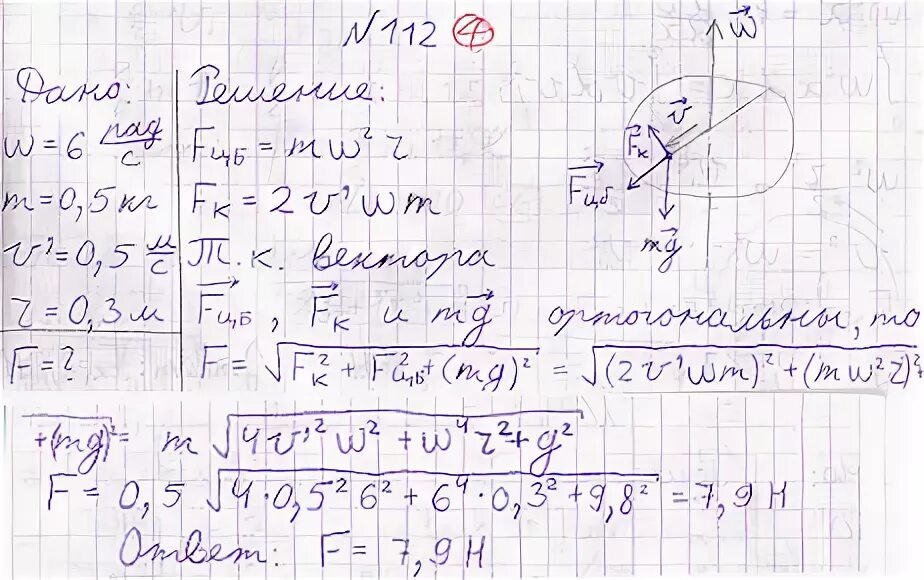 N112 ④
Дано:
w = 6 рад/с
m = 0,5 кг
v' = 0,5 м/с
r = 0,3 м
F = ?
Решение:
F⃗цБ = mw²r
Fк = 2v'wm
Т.к. вектора
F⃗цБ, F⃗к и mg⃗ ортогональны, то
F = √(Fк² + FцБ² + (mg)²) = √((2v'wm)² + (mw²r)² +
+(mg)²) = m √(4v'²w² + w⁴r² + g²)
F = 0,5 √(4·0,5² 6² + 6⁴·0,3² + 9,8²) = 7,9 Н
Ответ: F = 7,9 Н
w⃗
v⃗
F⃗к
F⃗цб
mg⃗